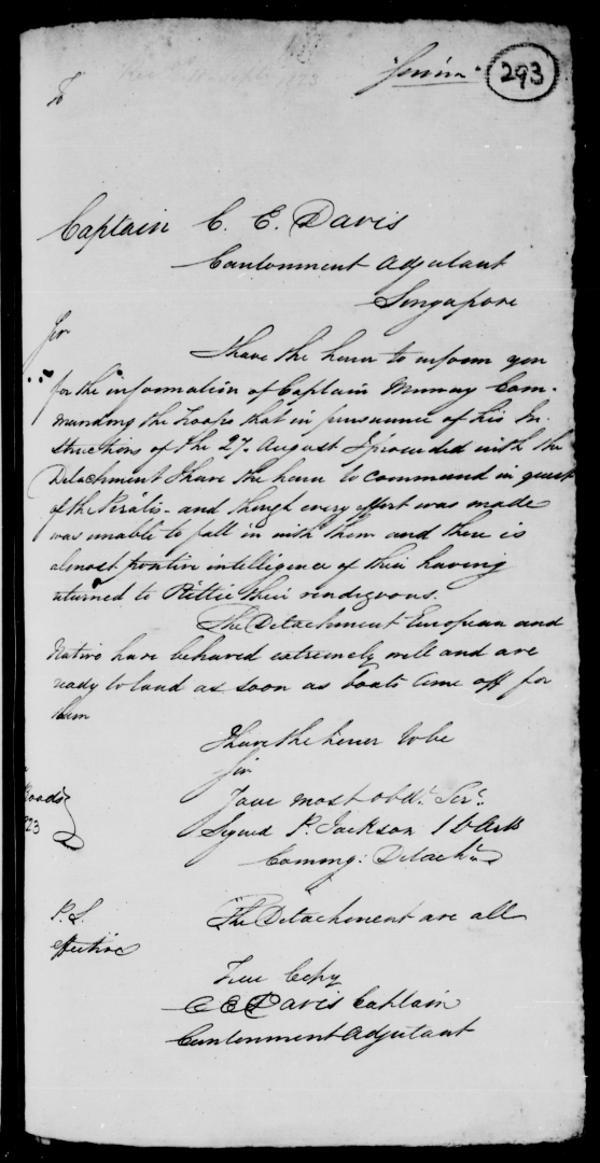 293
To
Captain C. E. Davis
Cantonment Adjutant
Singapore
Sir
I have the honor to inform you
for the information of Captain Murray Com-
manding the Troops that in pursuance of his In-
structions of the 27. August I proceeded with the
Detachment I have the honor to command in quest
of the Pirates - and though every effort was made
was unable to fall in with them and there is
almost positive intelligence of their having
returned to Rittie their rendezvous.
The Detachment European and
Native have behaved extremely well and are
ready to land as soon as boats come off for
them
I have the honor to be
Sir
Your most obdt. Servt.
Roads
23
Signed P. Jackson
Commg: Detacht
P. S. The Detachment are all
effective
True Copy
C E Davis Captain
Cantonment Adjutant